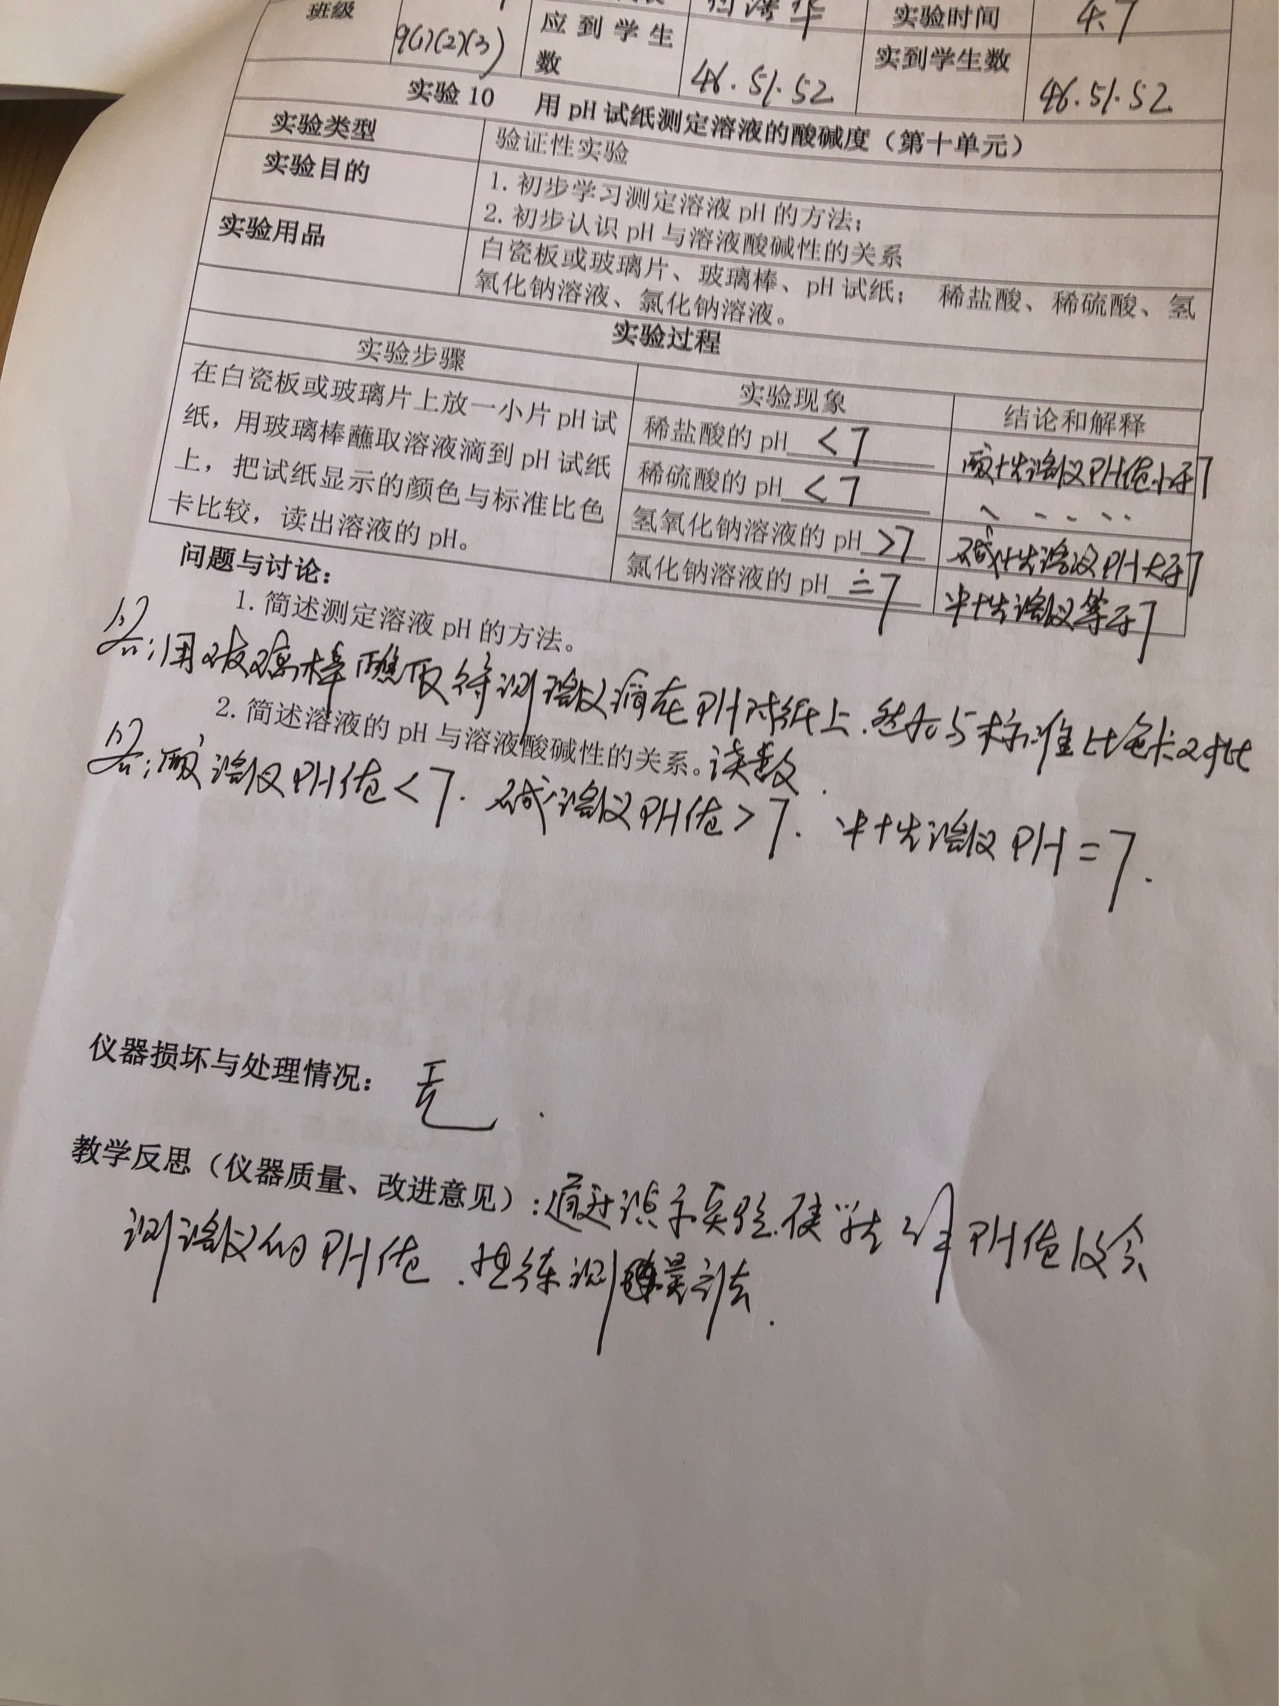 班级
9(1)(2)(3)
应到学生数
46.51.52
实验时间
4.7
实到学生数
46.51.52
实验10 用pH试纸测定溶液的酸碱度（第十单元）
实验类型
验证性实验
实验目的
1. 初步学习测定溶液pH的方法；
2. 初步认识pH与溶液酸碱性的关系
实验用品
白瓷板或玻璃片、玻璃棒、pH试纸； 稀盐酸、稀硫酸、氢
氧化钠溶液、氯化钠溶液。
实验过程
实验步骤
实验现象
结论和解释
在白瓷板或玻璃片上放一小片pH试
纸，用玻璃棒蘸取溶液滴到pH试纸
上，把试纸显示的颜色与标准比色
卡比较，读出溶液的pH。
稀盐酸的pH <7
酸性溶液PH值小于7
稀硫酸的pH <7
氢氧化钠溶液的pH >7
碱性溶液PH大于7
氯化钠溶液的pH ≐7
中性溶液等于7
问题与讨论：
1. 简述测定溶液pH的方法。
答：用玻璃棒蘸取待测溶液滴在PH试纸上.然后与标准比色卡对比
读数.
2. 简述溶液的pH与溶液酸碱性的关系。
答：酸溶液PH值<7. 碱溶液PH值>7. 中性溶液PH=7.
仪器损坏与处理情况： 无.
教学反思（仪器质量、改进意见）：通过演示实验.使学生 PH值及会
测溶液的PH值. 测量方法.